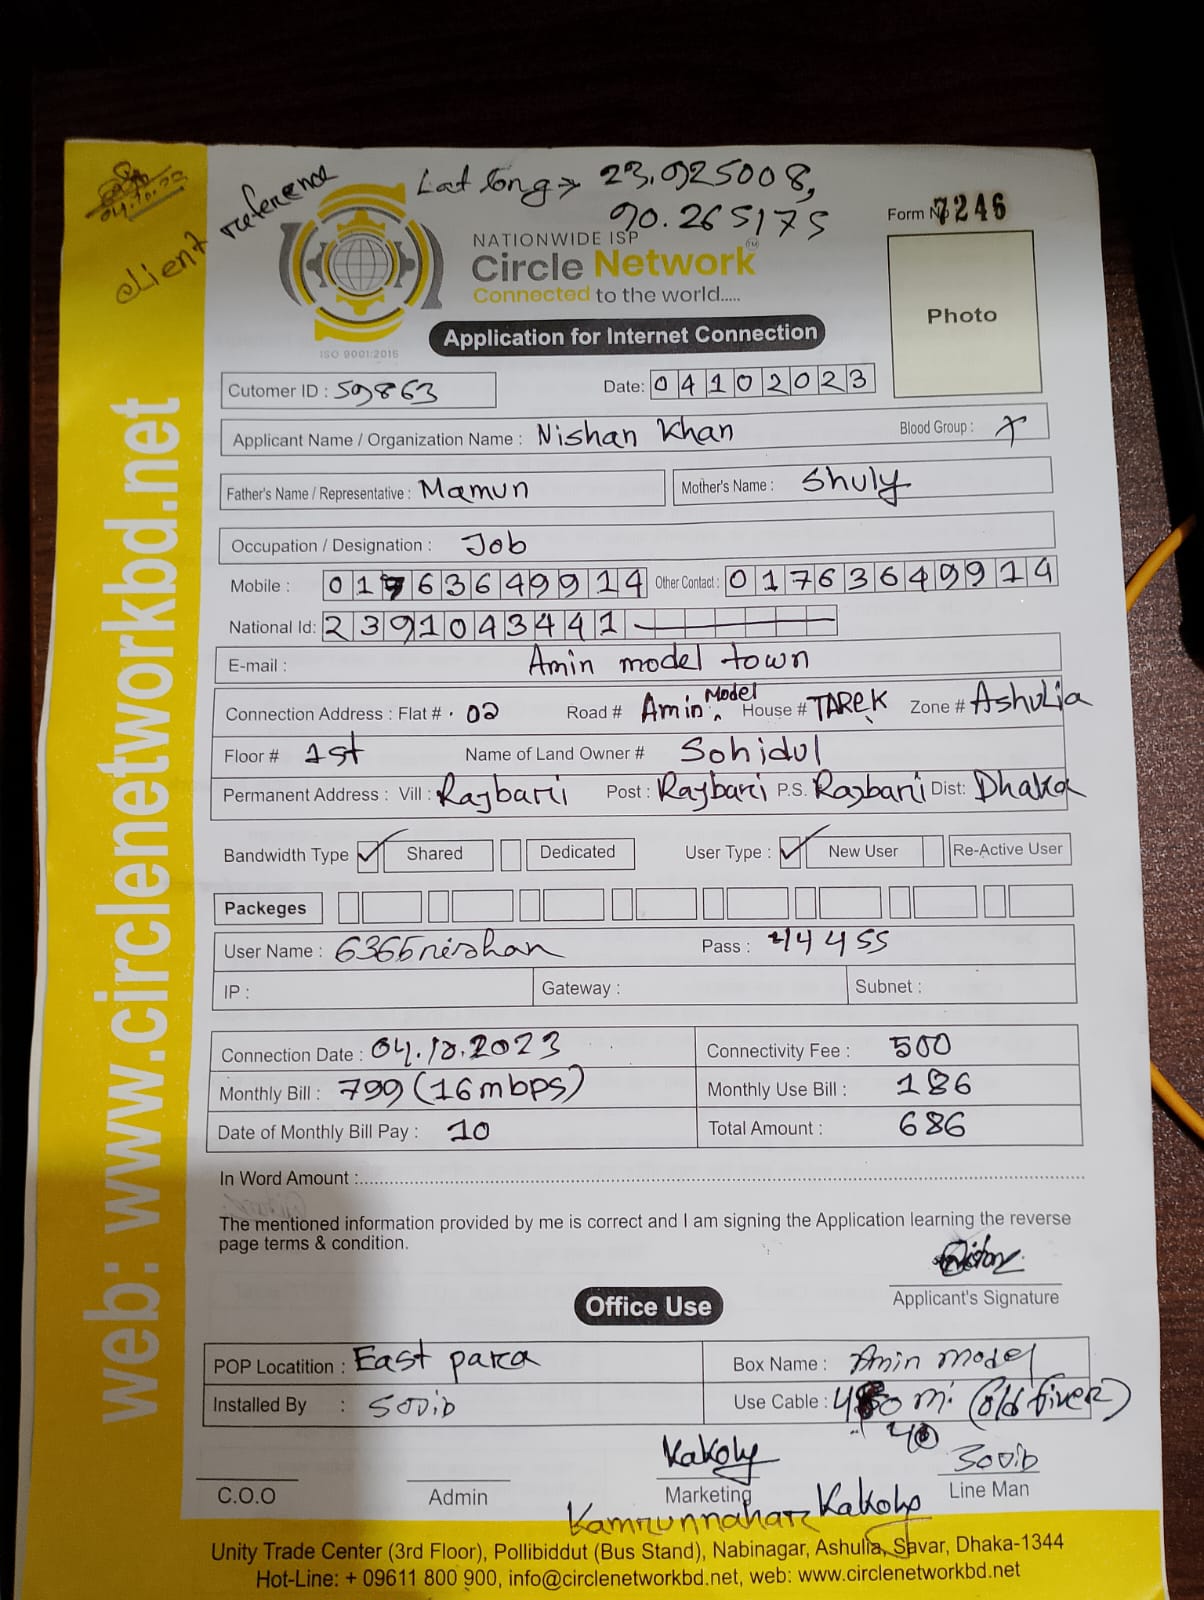 04.10.23
client reference
Lat long → 23.925008,
90.265175
Form No 7246
NATIONWIDE ISP
Circle Network TM
Connected to the world.....
ISO 9001:2015
Photo
Application for Internet Connection
Cutomer ID : 59863 Date: 04102023
Applicant Name / Organization Name : Nishan Khan Blood Group :
Father's Name / Representative : Mamun Mother's Name : Shuly
Occupation / Designation : Job
Mobile : 01763649914 Other Contact : 01763649914
National Id: 2391043441
E-mail : Amin model town
Connection Address : Flat # 02 Road # Amin Model House # TAREK Zone # Ashulia
Floor # 1st Name of Land Owner # Sohidul
Permanent Address : Vill : Rajbari Post : Rajbari P.S. Rajbari Dist: Dhaka
Bandwidth Type ✓ Shared Dedicated User Type : ✓ New User Re-Active User
Packeges
User Name : 6365nishan Pass : 44455
IP : Gateway : Subnet :
Connection Date : 04.10.2023 Connectivity Fee : 500
Monthly Bill : 799 (16mbps) Monthly Use Bill : 186
Date of Monthly Bill Pay : 10 Total Amount : 686
In Word Amount :
The mentioned information provided by me is correct and I am signing the Application learning the reverse
page terms & condition.
Applicant's Signature
Office Use
POP Locatition : East para Box Name : Amin model
Installed By : Sovib Use Cable : m. (old fiver)
40
Kakoly Sovib
C.O.O Admin Marketing Line Man
Kamrunnahar Kakoly
Unity Trade Center (3rd Floor), Pollibiddut (Bus Stand), Nabinagar, Ashulia, Savar, Dhaka-1344
Hot-Line: + 09611 800 900, info@circlenetworkbd.net, web: www.circlenetworkbd.net
web: www.circlenetworkbd.net